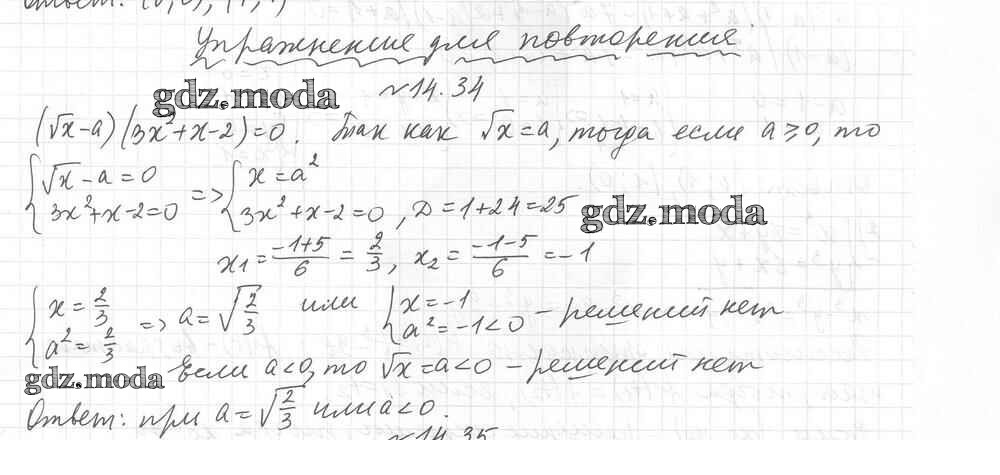 Ответ: (0; 0), (1; 1)
Упражнение для повторения
gdz.moda
№14.34
(√x-a)(3x²+x-2)=0. Так как √x=a, тогда если a≥0, то
{√x-a=0
3x²+x-2=0 => {x=a²
3x²+x-2=0, D=1+24=25
gdz.moda
x₁=(-1+5)/6=2/3, x₂=(-1-5)/6=-1
{x=2/3
a²=2/3 => a=√(2/3) или {x=-1
a²=-1<0 - решений нет
gdz.moda
Если a<0, то √x=a<0 - решений нет
Ответ: при a=√(2/3) или a<0.
№14.35